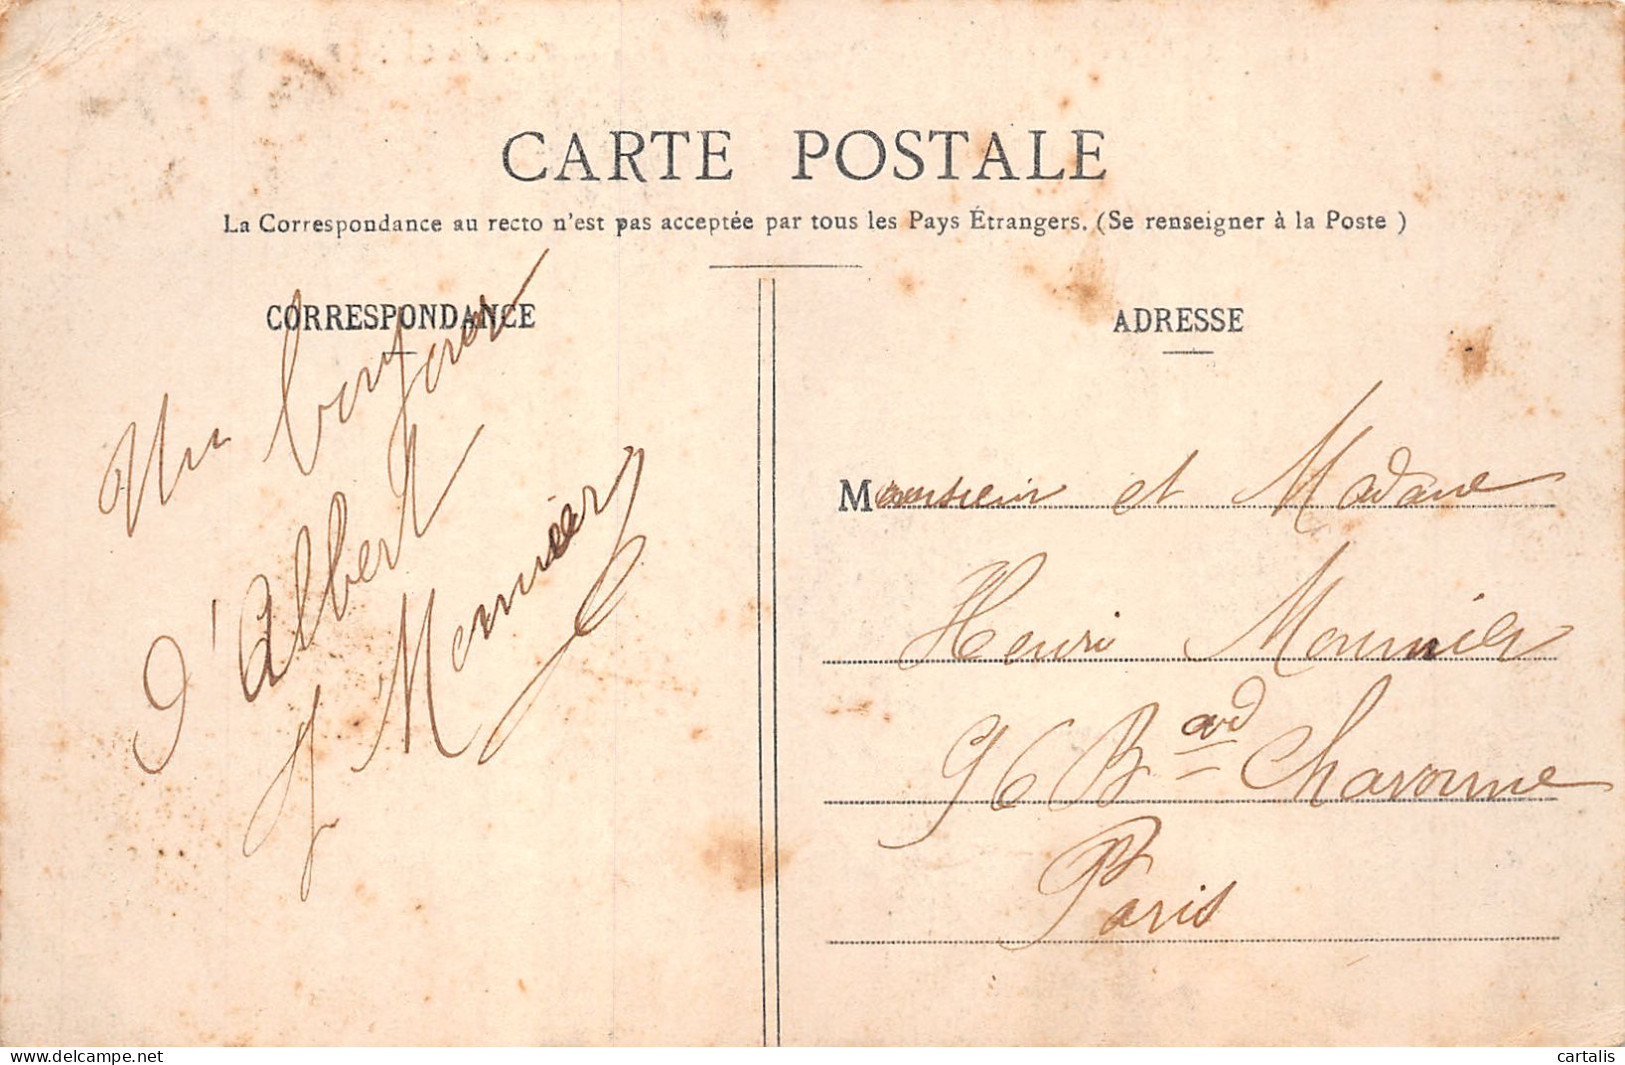 CARTE POSTALE
La Correspondance au recto n'est pas acceptée par tous les Pays Étrangers. (Se renseigner à la Poste )
CORRESPONDANCE
Un bonjour
d'Albert
ADRESSE
Monsieur et Madame
Henri Mounier
96 Bard Charonne
Paris
delcampe.net
cartalis